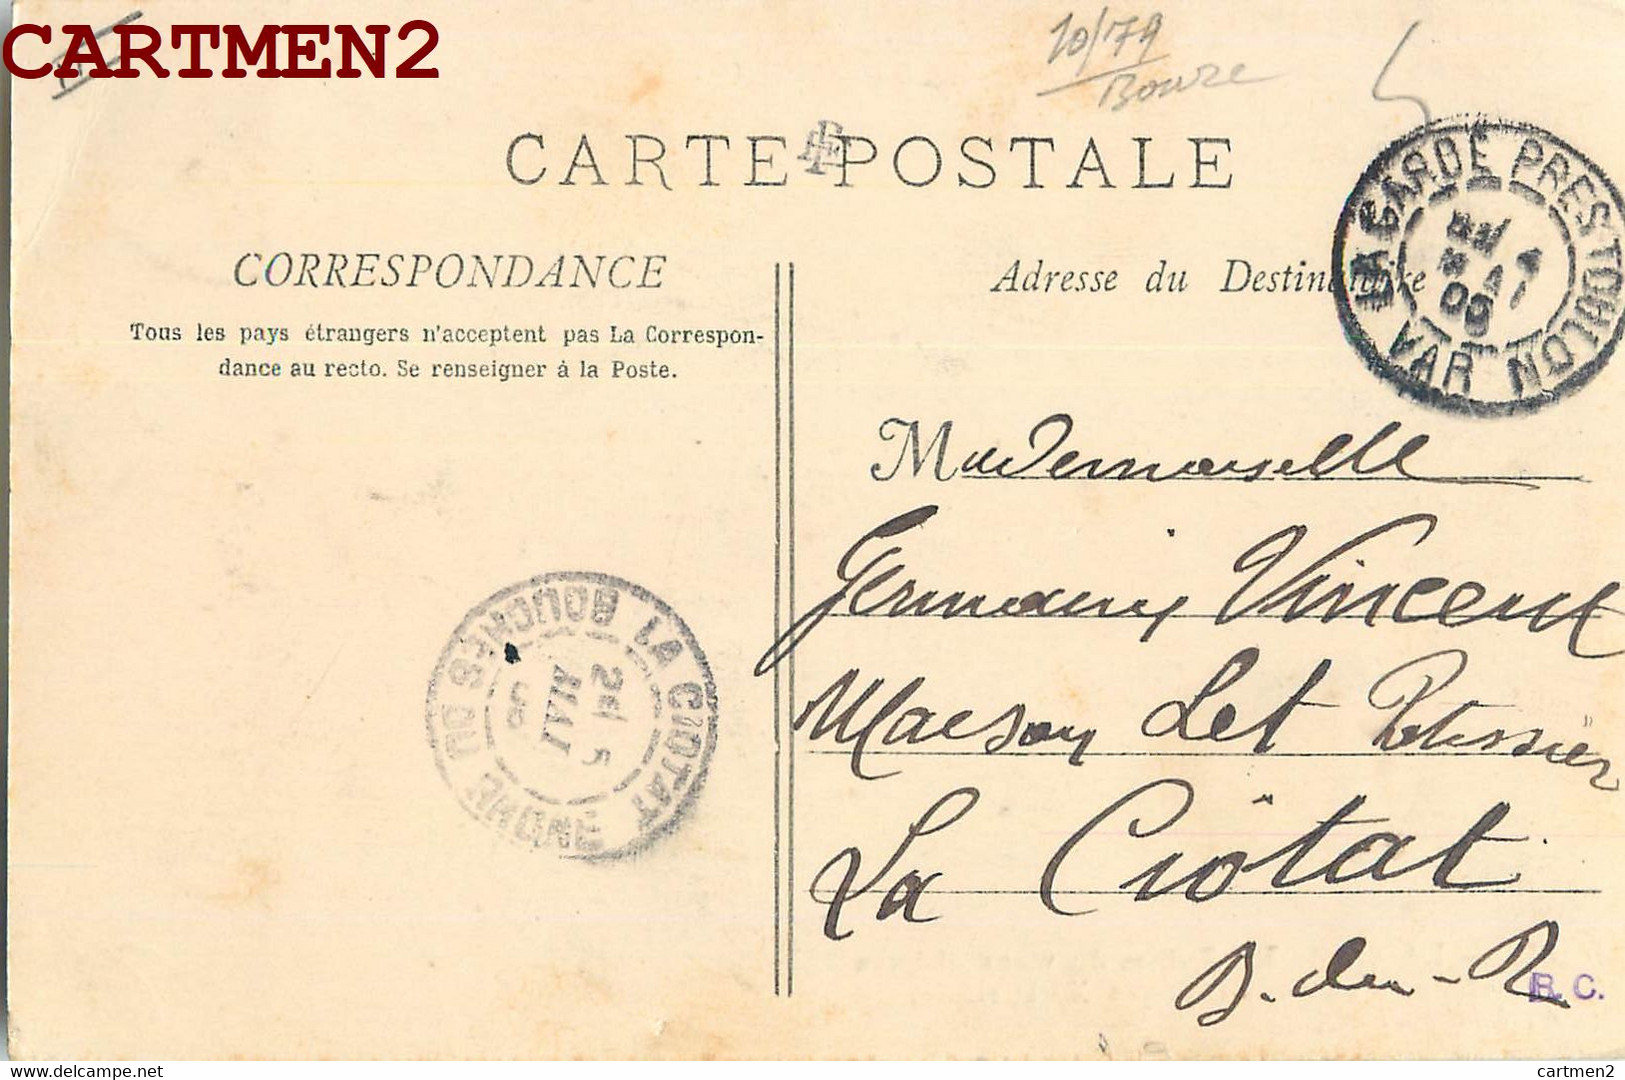 CARTMEN2
10/79
CARTE POSTALE
LA GARDE PRES TOULON
VAR
CORRESPONDANCE
Adresse du Destinataire
Tous les pays étrangers n'acceptent pas La Correspon-
dance au recto. Se renseigner à la Poste.
Mademoiselle
Germaine Vincent
Maison Let Patissier
La Ciôtat
B. du-R
B.C.
LA CIOTAT
BOUCHES DU RHONE
MAI
delcampe.net
cartmen2